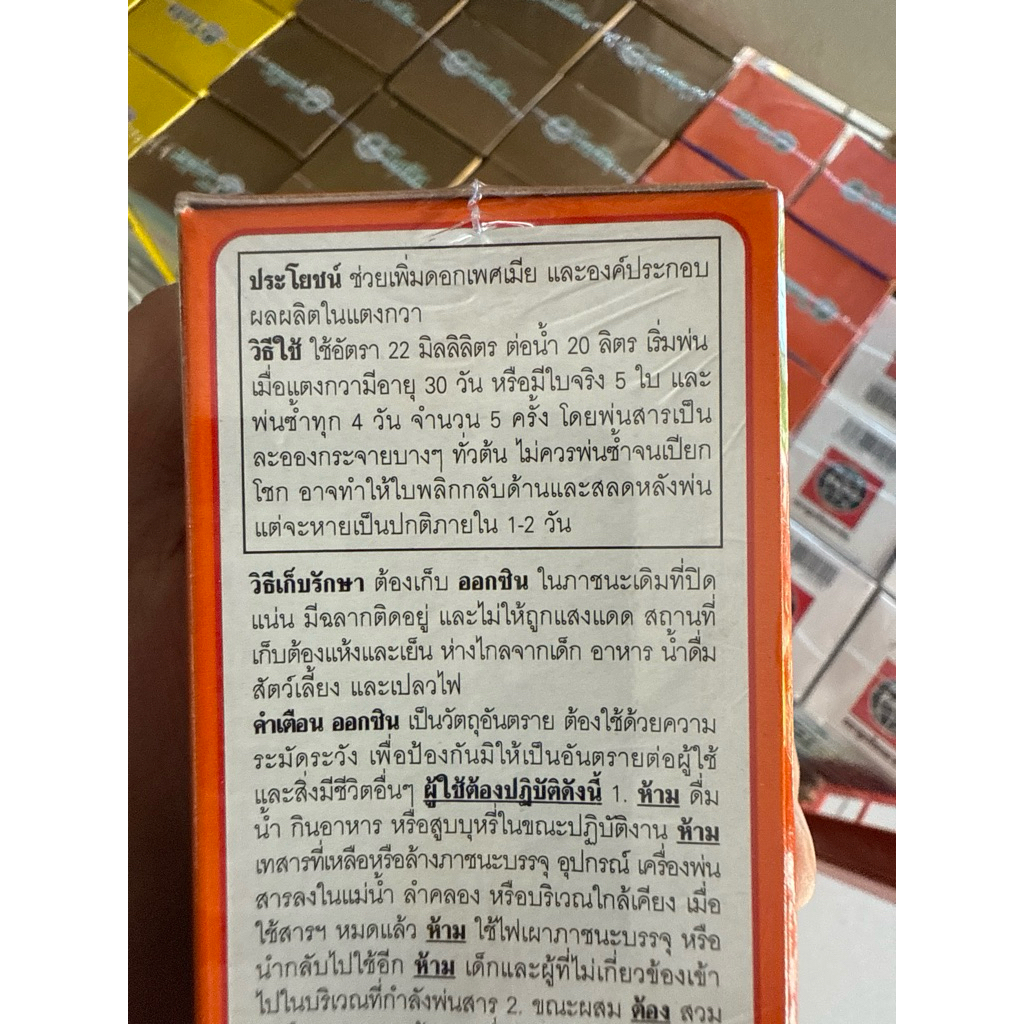 ประโยชน์ ช่วยเพิ่มดอกเพศเมีย และองค์ประกอบ
ผลผลิตในแตงกวา
วิธีใช้ ใช้อัตรา 22 มิลลิลิตร ต่อน้ำ 20 ลิตร เริ่มพ่น
เมื่อแตงกวามีอายุ 30 วัน หรือมีใบจริง 5 ใบ และ
พ่นซ้ำทุก 4 วัน จำนวน 5 ครั้ง โดยพ่นสารเป็น
ละอองกระจายบางๆ ทั่วต้น ไม่ควรพ่นซ้ำจนเปียก
โชก อาจทำให้ใบพลิกกลับด้านและสลดหลังพ่น
แต่จะหายเป็นปกติภายใน 1-2 วัน
วิธีเก็บรักษา ต้องเก็บ ออกซิน ในภาชนะเดิมที่ปิด
แน่น มีฉลากติดอยู่ และไม่ให้ถูกแสงแดด สถานที่
เก็บต้องแห้งและเย็น ห่างไกลจากเด็ก อาหาร น้ำดื่ม
สัตว์เลี้ยง และเปลวไฟ
คำเตือน ออกซิน เป็นวัตถุอันตราย ต้องใช้ด้วยความ
ระมัดระวัง เพื่อป้องกันมิให้เป็นอันตรายต่อผู้ใช้
และสิ่งมีชีวิตอื่นๆ ผู้ใช้ต้องปฏิบัติดังนี้ 1. ห้าม ดื่ม
น้ำ กินอาหาร หรือสูบบุหรี่ในขณะปฏิบัติงาน ห้าม
เทสารที่เหลือหรือล้างภาชนะบรรจุ อุปกรณ์ เครื่องพ่น
สารลงในแม่น้ำ ลำคลอง หรือบริเวณใกล้เคียง เมื่อ
ใช้สารฯ หมดแล้ว ห้าม ใช้ไฟเผาภาชนะบรรจุ หรือ
นำกลับไปใช้อีก ห้าม เด็กและผู้ที่ไม่เกี่ยวข้องเข้า
ไปในบริเวณที่กำลังพ่นสาร 2. ขณะผสม ต้อง สวม